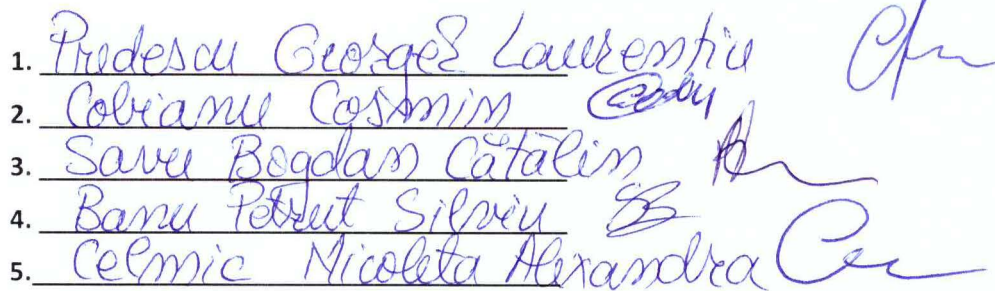 1. Predescu George Laurentiu
2. Cobianu Cosmin
3. Savu Bogdan Cătălin
4. Banu Petrut Silviu SB
5. Celmic Nicoleta Alexandra